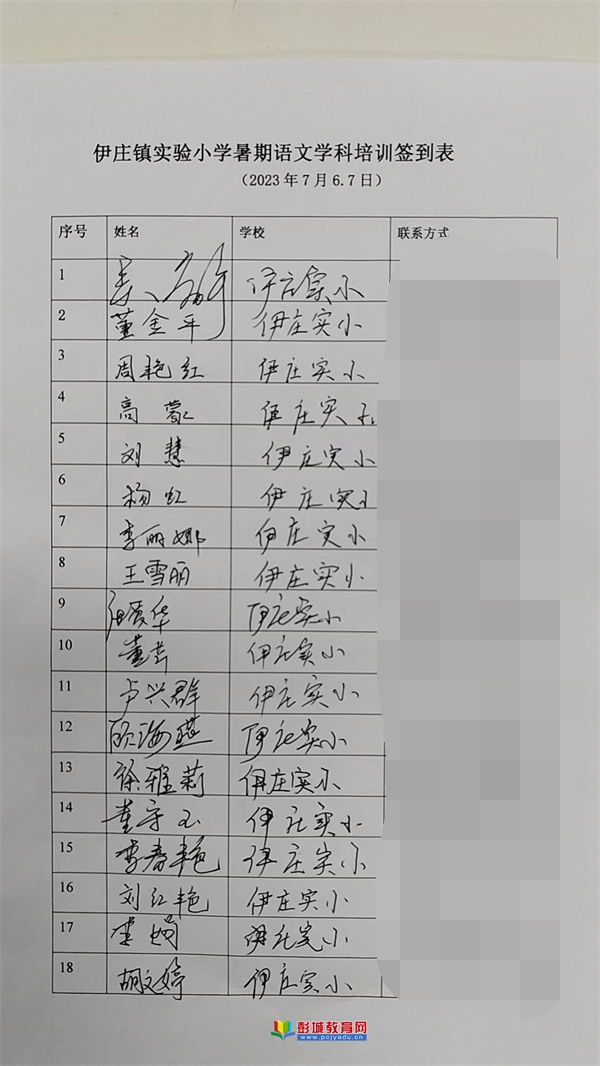 伊庄镇实验小学暑期语文学科培训签到表
（2023年7月6.7日）
序号 姓名 学校 联系方式
1 伊庄实小
2 董金平 伊庄实小
3 周艳红 伊庄实小
4 高蒙 伊庄实小
5 刘慧 伊庄实小
6 杨虹 伊庄实小
7 李丽娜 伊庄实小
8 王雪丽 伊庄实小
9 爱华 伊庄实小
10 董芸 伊庄实小
11 卢兴群 伊庄实小
12 顾海燕 伊庄实小
13 徐雅莉 伊庄实小
14 董守玉 伊庄实小
15 李春艳 伊庄实小
16 刘红艳 伊庄实小
17 李娟 伊庄实小
18 胡文婷 伊庄实小
彭城教育网
www.pcjyedu.cn